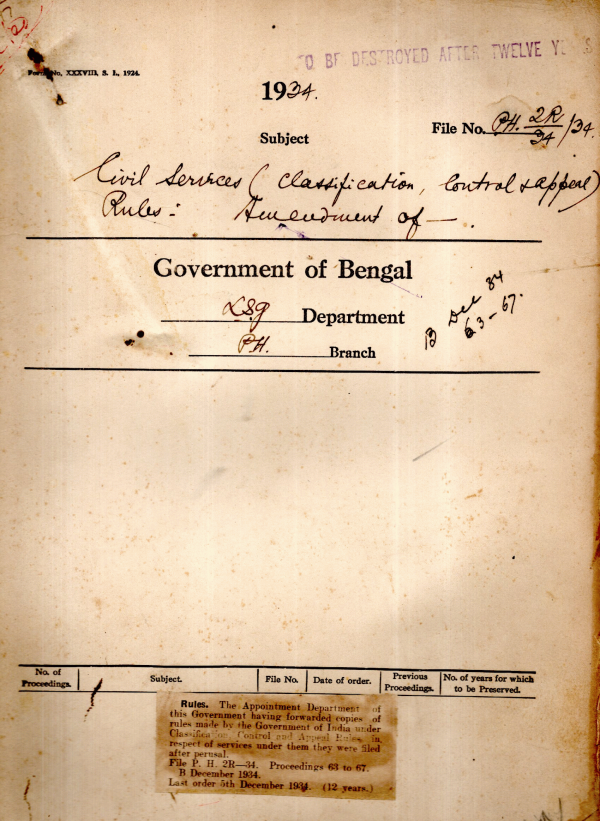 TO BE DESTROYED AFTER TWELVE
Form No. XXXVIII, S. I., 1924.
1934.
File No. P.H. 2R/34 /34.
Subject
Civil Services (Classification, Control & appeal)
Rules:- Amendment of —
Government of Bengal
LSG Department
P.H. Branch
B Dec 34
63-67.
No. of Proceedings. Subject. File No. Date of order. Previous Proceedings. No. of years for which to be Preserved.
Rules. The Appointment Department of
this Government having forwarded copies of
rules made by the Government of India under
Classification, Control and Appeal Rules, in
respect of services under them they were filed
after perusal.
File P. H. 2R—34. Proceedings 63 to 67.
B December 1934.
Last order 5th December 1934. (12 years.)